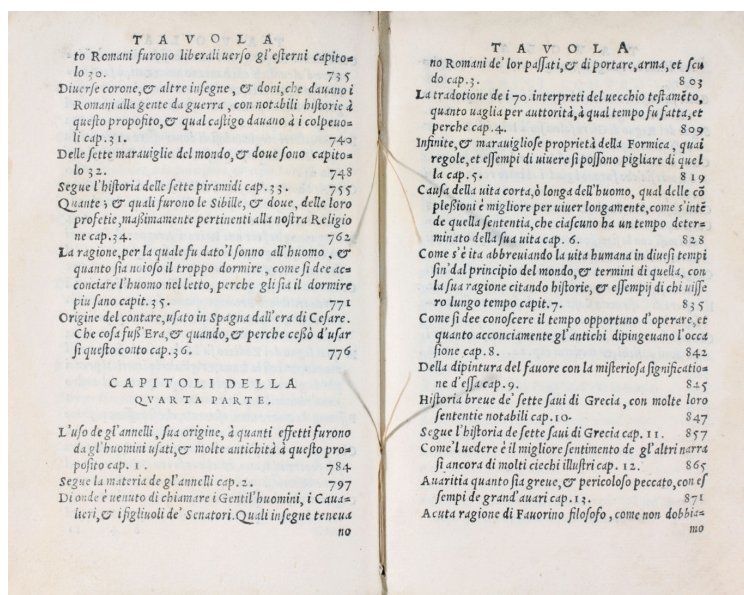 TAVOLA
to Romani furono liberali uerso gl'esterni capito=
lo 30. 735
Diuerse corone, & altre insegne, & doni, che dauano i
Romani alla gente da guerra, con notabili historie à
questo proposito, & qual castigo dauano à i colpeuo=
li cap. 31. 740
Delle sette marauiglie del mondo, & doue sono capito=
lo 32. 748
Segue l'historia delle sette piramidi cap. 33. 755
Quante; & quali furono le Sibille, & doue, delle loro
profetie, maßimamente pertinenti alla nostra Religio
ne cap. 34. 762
La ragione, per la quale fu dato'l sonno all'huomo, &
quanto sia noioso il troppo dormire, come si dee ac=
conciare l'huomo nel letto, perche gli sia il dormire
piu sano capit. 35. 771
Origine del contare, usato in Spagna dall'era di Cesare.
Che cosa fuß'Era, & quando, & perche ceßò d'usar
si questo conto cap. 36. 776
CAPITOLI DELLA
QVARTA PARTE.
L'uso de gl'annelli, sua origine, à quanti effetti furono
da gl'huomini usati, & molte antichità à questo pro=
posito cap. 1. 784
Segue la materia de gl'annelli cap. 2. 797
Di onde è uenuto di chiamare i Gentil'huomini, i Caua=
lieri, & i figliuoli de' Senatori. Quali insegne teneua
no
TAVOLA
no Romani de' lor passati, & di portare, arma, et scu
do cap. 3. 803
La tradotione de i 70. interpreti del uecchio testamẽto,
quanto uaglia per auttorità, à qual tempo fu fatta, et
perche cap. 4. 809
Infinite, & marauigliose proprietà della Formica, quai
regole, et essempi di uiuere si possono pigliar di quel
la cap. 5. 819
Causa della uita corta, ò longa dell'huomo, qual delle cõ
pleßioni è migliore per uiuer longamente, come s'intẽ
de quella sententia, che ciascuno ha un tempo deter=
minato della sua uita cap. 6. 828
Come s'è ita abbreuiando la uita humana in diuesi tempi
sin'dal principio del mondo, & termini di quella, con
la sua ragione citando historie, & essempij di chi uisse
ro lungo tempo capit. 7. 835
Come si dee conoscere il tempo opportuno d'operare, et
quanto acconciamente gl'antichi dipingeuano l'occa
sione cap. 8. 842
Della dipintura del fauore con la misteriosa significatio=
ne d'essa cap. 9. 845
Historia breue de' sette saui di Grecia, con molte loro
sententie notabili cap. 10. 847
Segue l'historia de sette saui di Grecia cap. 11. 857
Come'l uedere è il migliore sentimento de gl'altri narra
si ancora di molti ciechi illustri cap. 12. 865
Auaritia quanto sia greue, & pericoloso peccato, con es
sempi de grand'auari cap. 13. 871
Acuta ragione di Fauorino filosofo, come non dobbia=
mo